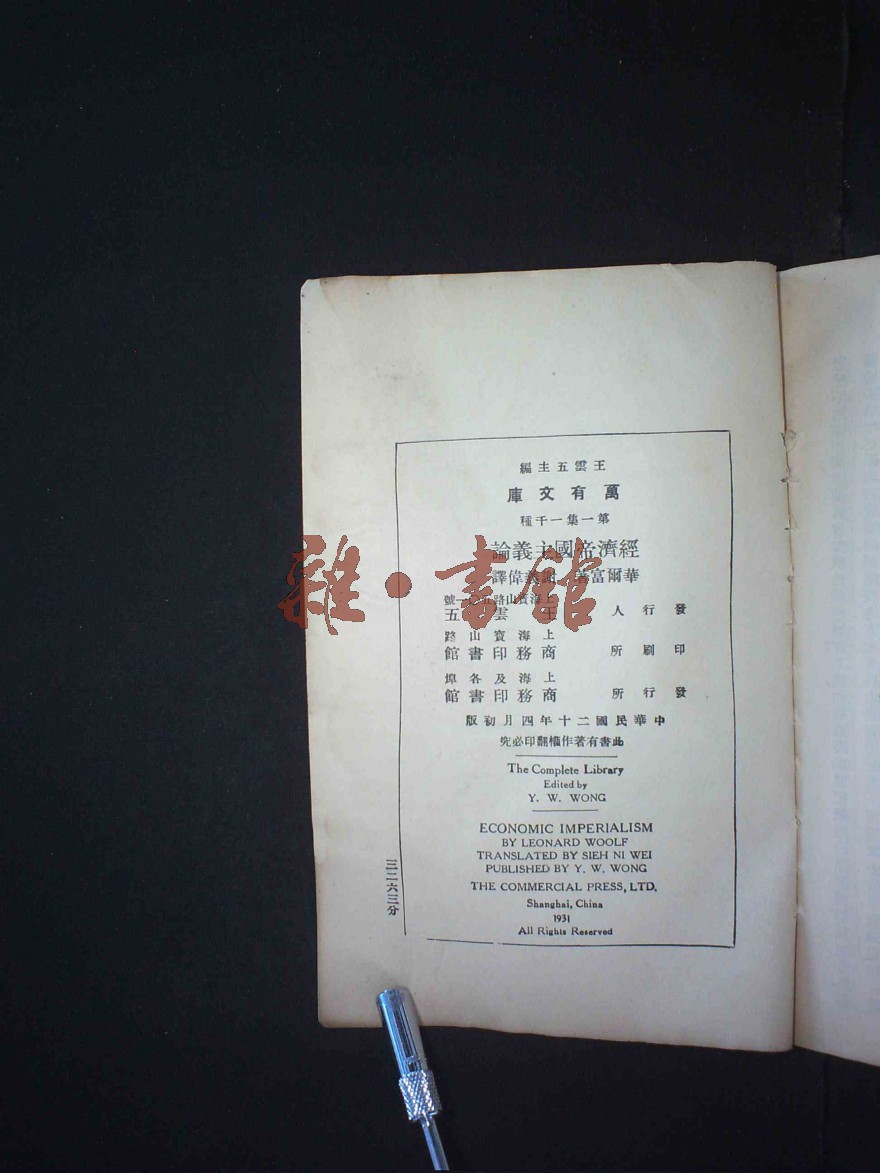 王雲五主編
萬有文庫
第一集一千種
經濟帝國主義論
華爾富著 謝義偉譯
上海寶山路 一號
發行人 王雲五
上海寶山路
印刷所 商務印書館
上海及各埠
發行所 商務印書館
中華民國二十年四月初版
此書有著作權翻印必究
The Complete Library
Edited by
Y. W. WONG
ECONOMIC IMPERIALISM
BY LEONARD WOOLF
TRANSLATED BY SIEH NI WEI
PUBLISHED BY Y. W. WONG
THE COMMERCIAL PRESS, LTD.
Shanghai, China
1931
All Rights Reserved
三二六三分
雜·書館